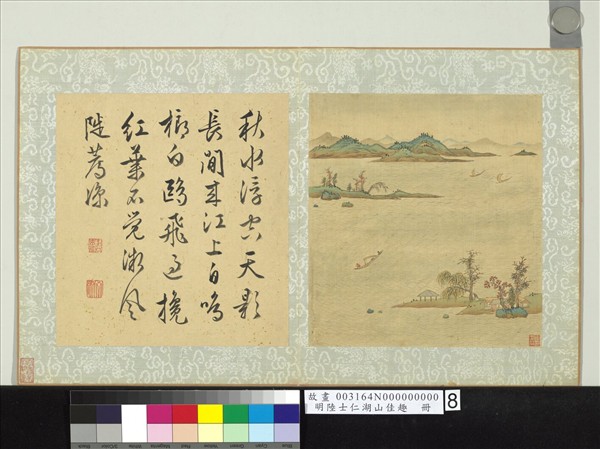 秋水浮空天影
長閒來江上自鳴
榔白鷗飛過攙
紅葉不覺微風
陡驀涼
故畫 003164N000000000
明陸士仁湖山佳趣 冊
8